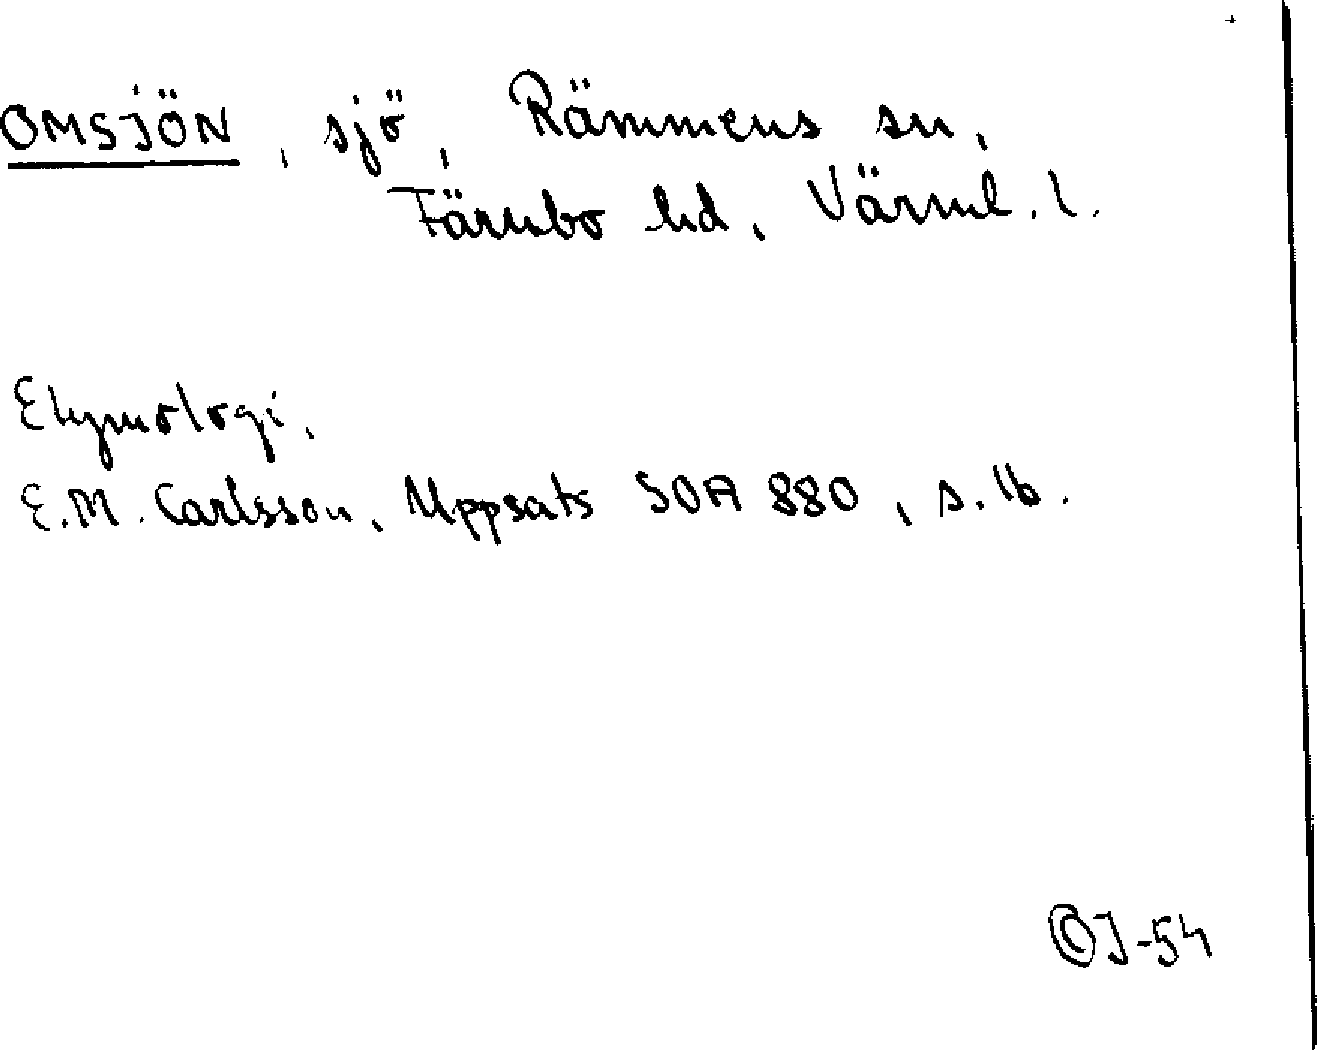 OMSJÖN, sjö, Rämmens sn,
Färnbo hd, Värml. l.
Etymologi.
E.M. Carlsson, Uppsats SOA 880, s. 16.
OJ-54